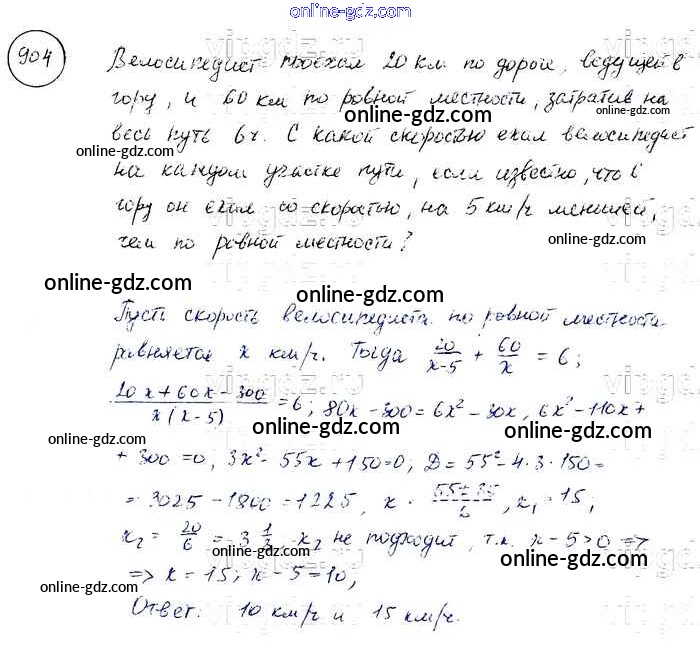 online-gdz.com
904
Велосипедист проехал 20 км по дороге, ведущей в
гору, и 60 км по ровной местности, затратив на
online-gdz.com
весь путь 6 ч. С какой скоростью ехал велосипедист
online-gdz.com
online-gdz.com
на каждом участке пути, если известно, что в
online-gdz.com
гору он ехал со скоростью, на 5 км/ч меньшей,
чем по ровной местности?
online-gdz.com
online-gdz.com
online-gdz.com
Пусть скорость велосипедиста по ровной местности
равняется x км/ч. Тогда 20/(x-5) + 60/x = 6;
online-gdz.com
(20x+60x-300)/(x(x-5)) = 6; 80x-300=6x²-30x, 6x²-110x+
online-gdz.com
online-gdz.com
+ 300 = 0, 3x²-55x+150=0; D = 55²-4·3·150=
online-gdz.com
= 3025-1800=1225, x = (55±35)/6, x₁=15;
online-gdz.com
x₂ = 20/6 = 3 1/3 x₂ не подходит, т.к. x-5>0 =>
online-gdz.com
online-gdz.com
=> x = 15; x-5=10,
online-gdz.com
Ответ: 10 км/ч и 15 км/ч.
online-gdz.com
online-gdz.com